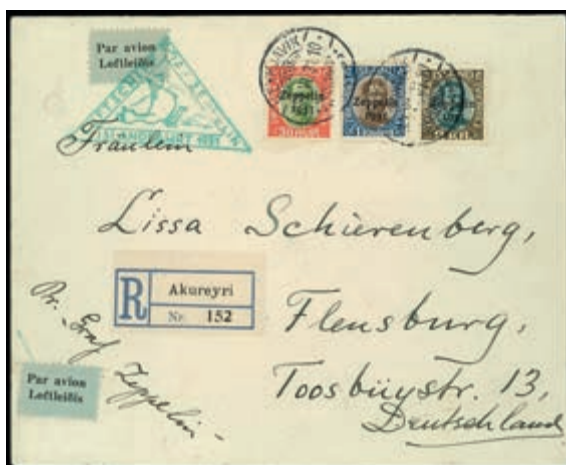 Par avion
Loftleiðis
ISLANDFAHRT 1931
Zeppelin
1931
Zeppelin
1931
Zeppelin
1931
Fräulein
Lissa Schierenberg,
R
Akureyri
Nr. 152
Flensburg,
Toosbüystr. 13,
Deutschland
Pr. „Graf Zeppelin“
Par avion
Loftleiðis